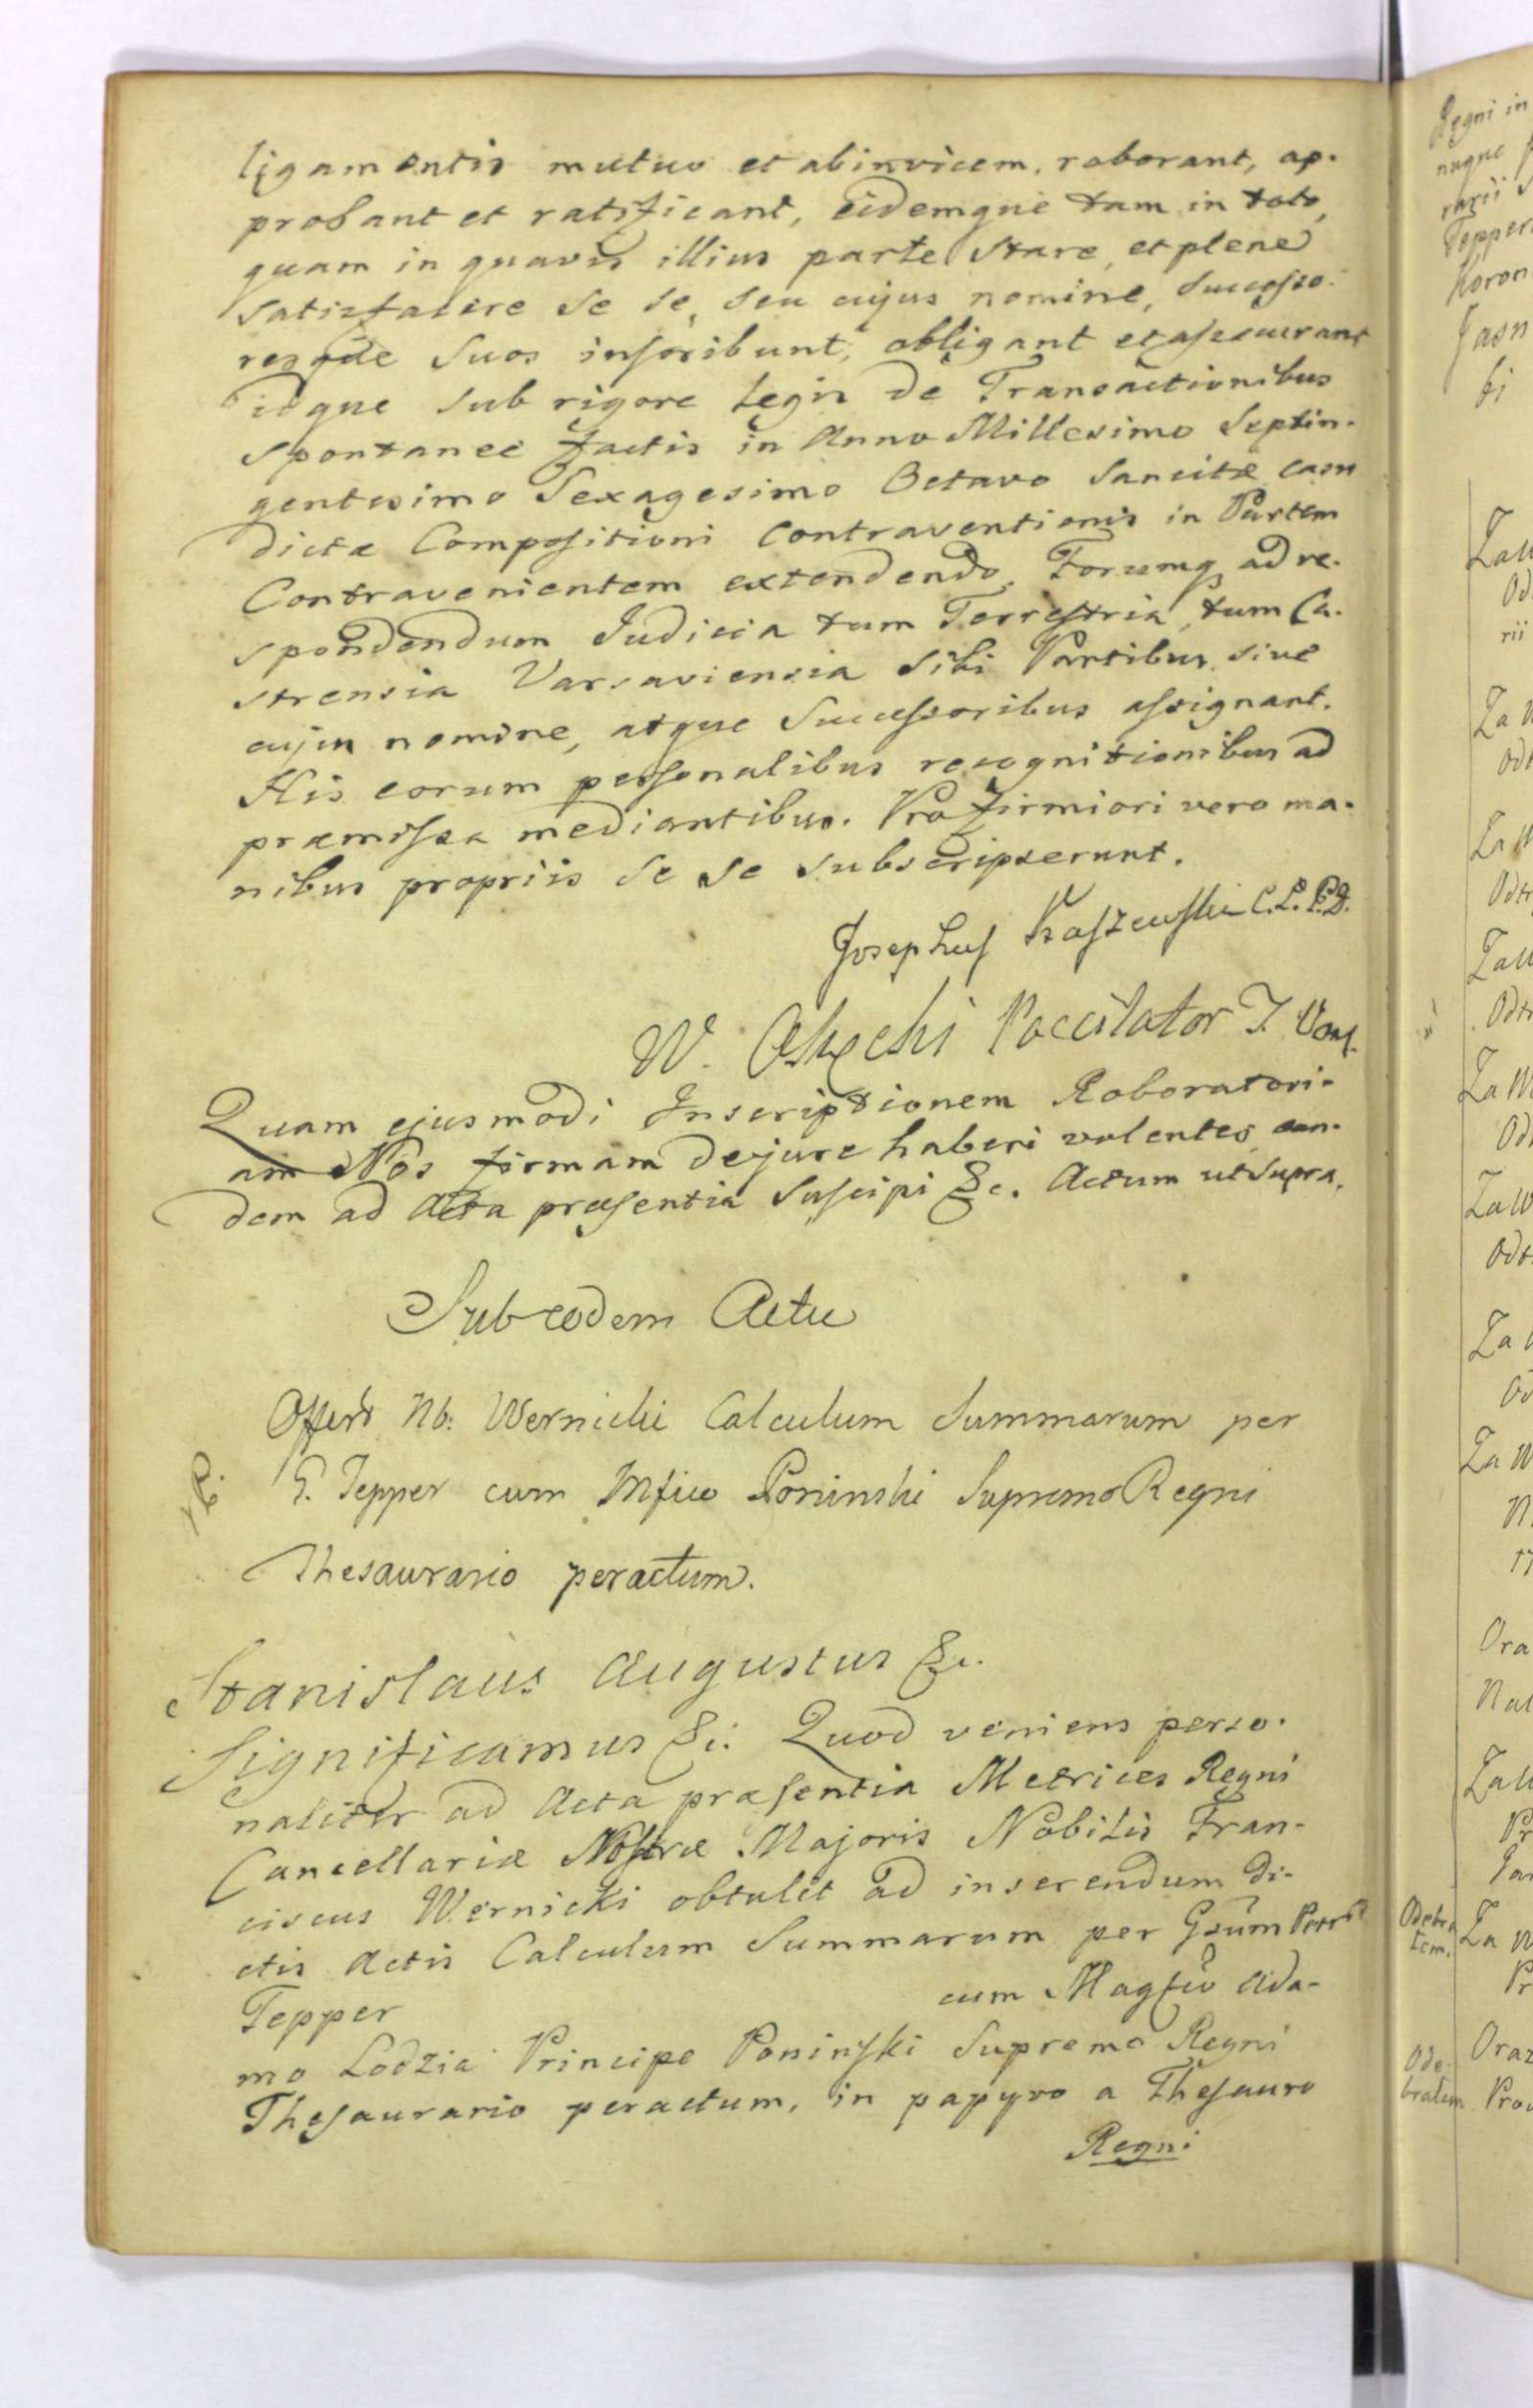 ligamentis mutuo et abinvicem, roborant, ap-
probant et ratificant, eidemque tam in toto,
quam in quavis illius parte stare, et plene
satisfacere se se, seu cujus nomine, Successo-
resque Suos inscribunt, obligant et assecurant
idque sub rigore Legis de Transactionibus
spontanee factis in Anno Millesimo Septin-
gentesimo Sexagesimo Octavo Sancitæ casu
dictæ Compositioni Contraventionis in Partem
Contravenientem extendendo, Forumq ad re-
spondendum Judicia tum Terrestria, tum Ca-
strensia Varsaviensia Sibi Partibus, sive
cujus nomine, atque Successoribus assignant.
His eorum personalibus recognitionibus ad
præmissa mediantibus. Pro firmiori vero ma-
nibus propriis se se subscripserunt.
Josephus C.L.P.D.
W.
Quam ejusmodi Inscriptionem Roboratori-
am Nos firmam de jure haberi volentes, ean-
dem ad Acta præsentia Suscipi &c. Actum ut Supra.
Sub eodem Actu
Offert Nb: Wernicki Calculum Summarum per
G. Tepper cum Mfico Poninski Supremo Regni
Thesaurario peractum.
Stanislaus Augustus &c.
Significamus &c. Quod veniens perso-
naliter ad Acta præsentia Metrices Regni
Cancellariæ Nostræ Majoris Nobilis Fran-
ciscus Wernicki obtulit ad inserendum di-
ctis Actis Calculum Summarum per Gsum
Tepper cum Magfco Ada-
mo Lodzia Principe Poninski Supremo Regni
Thesaurario peractum, in papyro a Thesauro
Regni
Regni in
Tepper
Koron
Jasn
ki
Odebra
tem.
Ode-
bratem